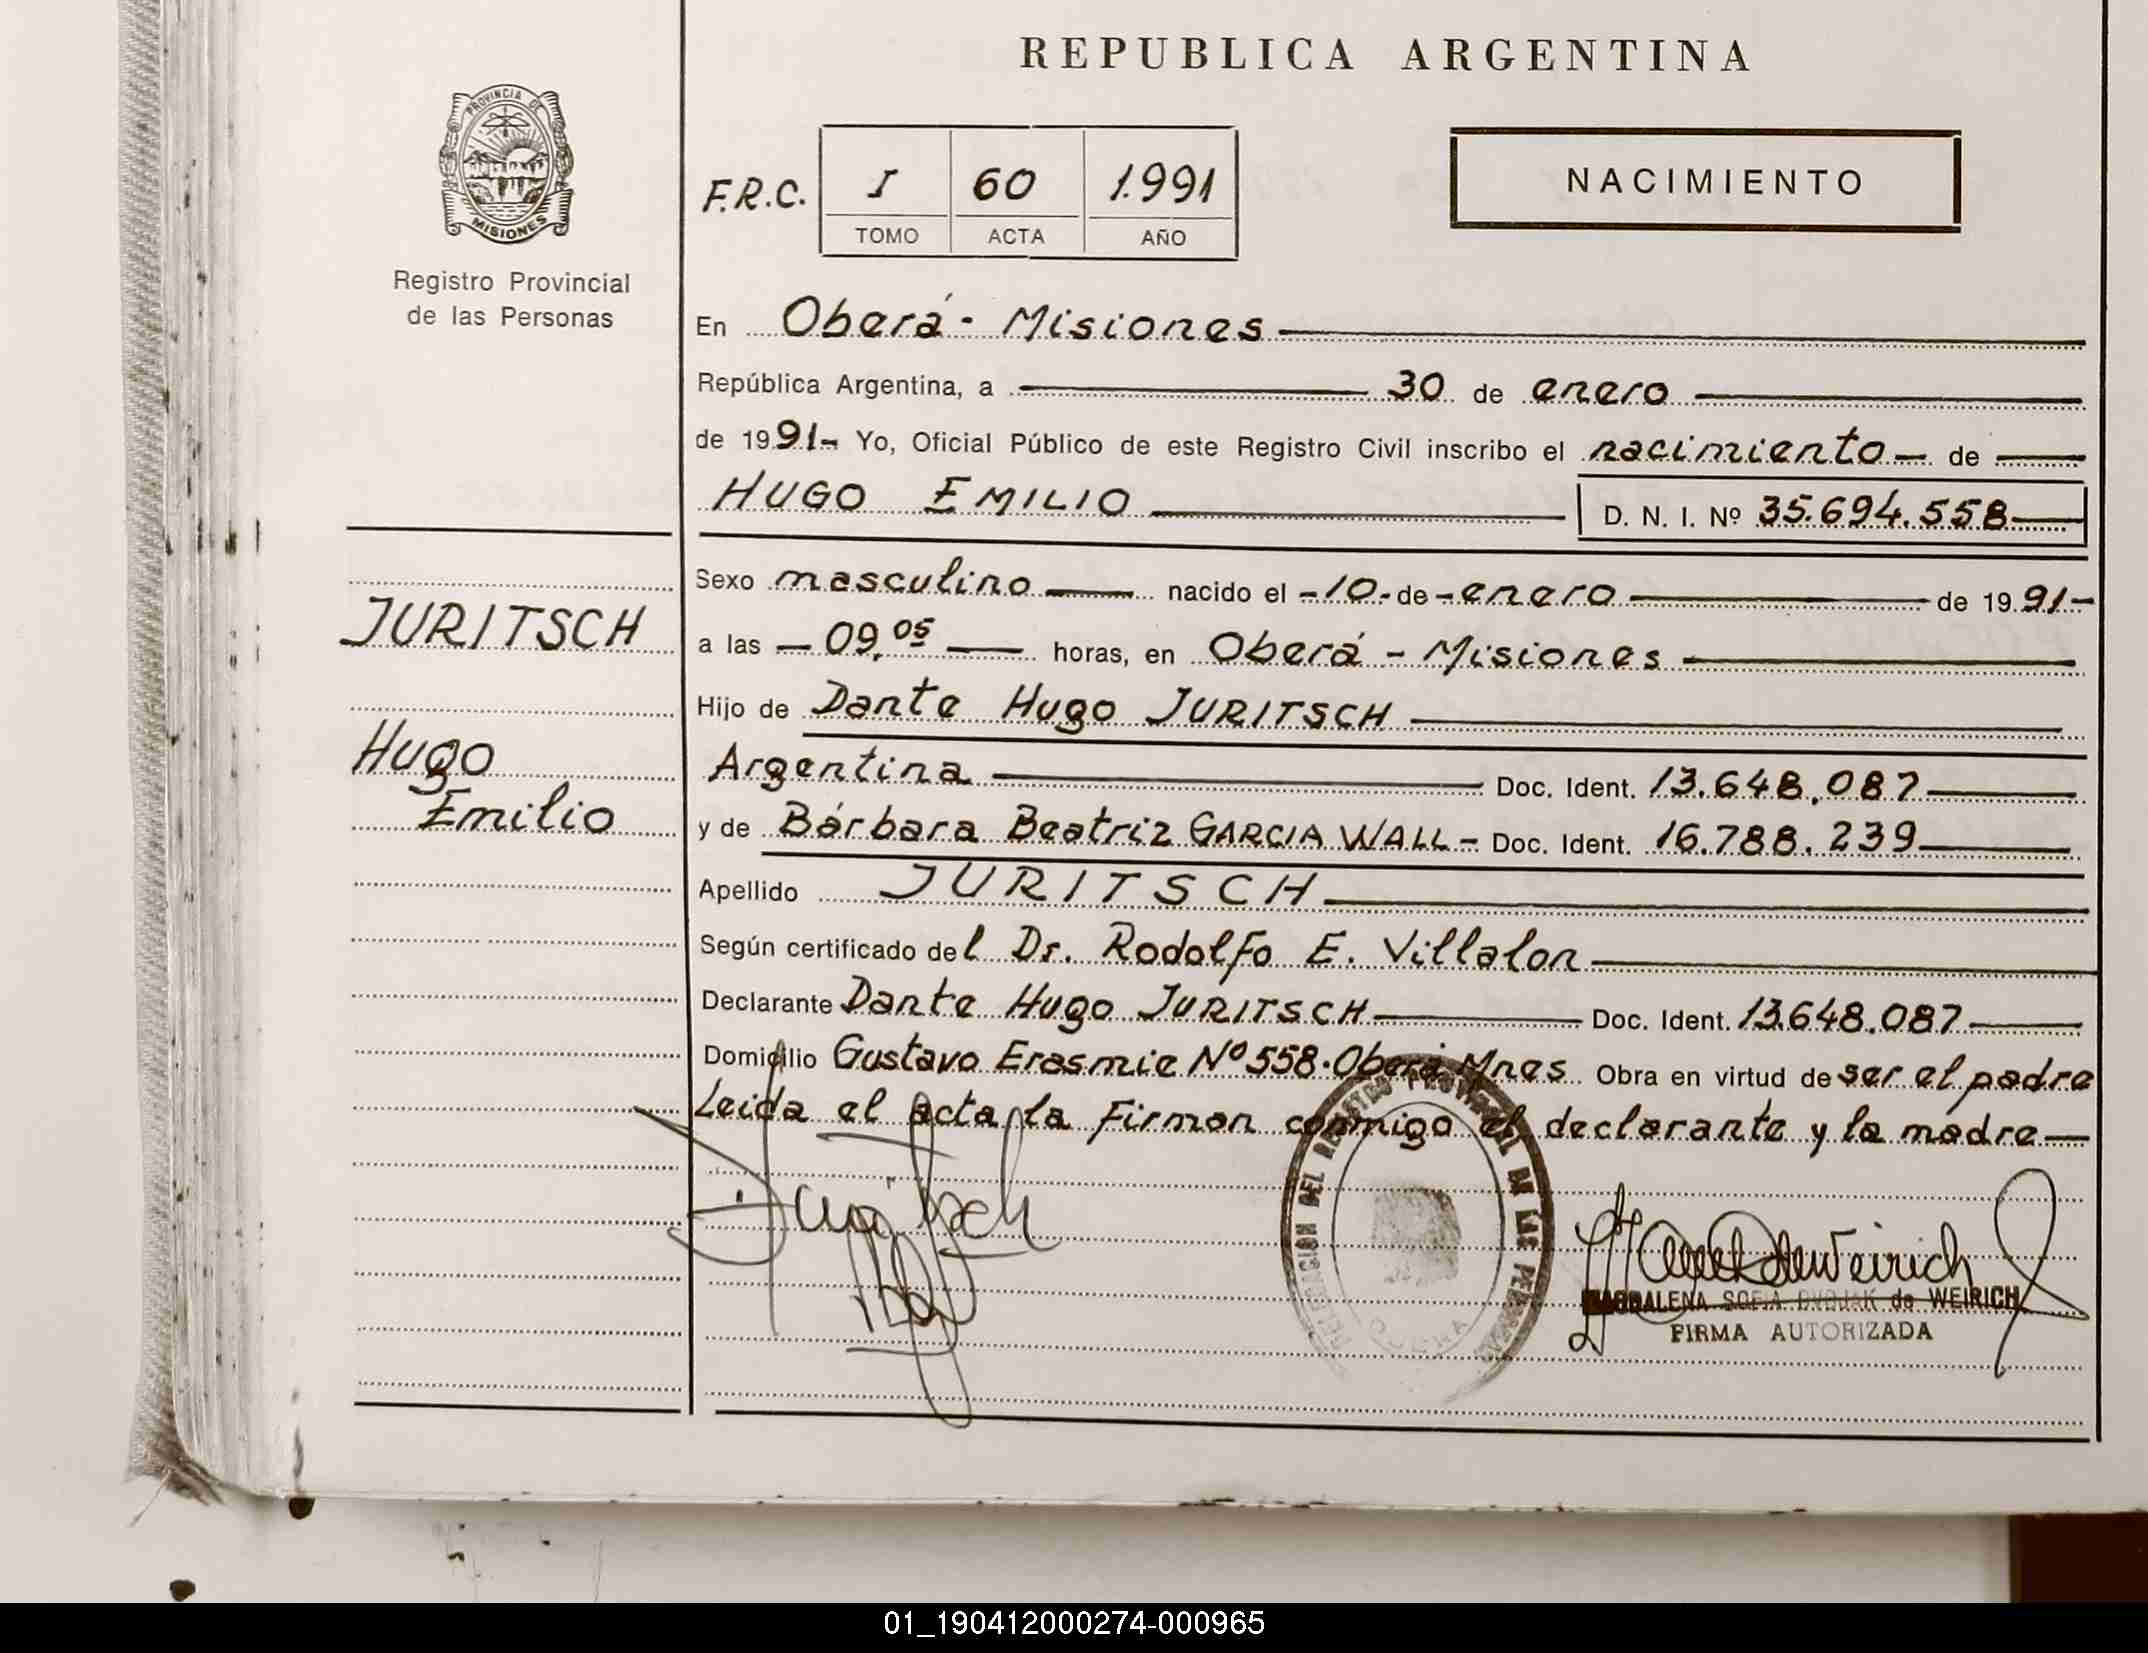 REPUBLICA ARGENTINA
PROVINCIA DE
MISIONES
Registro Provincial
de las Personas
F.R.C. I 60 1.991
TOMO ACTA AÑO
NACIMIENTO
En Oberá - Misiones
República Argentina, a 30 de enero
de 1991- Yo, Oficial Público de este Registro Civil inscribo el nacimiento - de
HUGO EMILIO D. N. I. Nº 35.694.558
JURITSCH
Hugo
Emilio
Sexo masculino nacido el -10- de - enero de 1991-
a las - 09,05 horas, en Oberá - Misiones
Hijo de Dante Hugo JURITSCH
Argentina Doc. Ident. 13.648.087
y de Bárbara Beatriz GARCIA WALL - Doc. Ident. 16.788.239
Apellido JURITSCH
Según certificado del Dr. Rodolfo E. Villalon
Declarante Dante Hugo JURITSCH Doc. Ident. 13.648.087
Domicilio Gustavo Erasmie Nº 558. Oberá Mnes Obra en virtud de ser el padre
Leida el acta la firman conmigo el declarante y la madre
Juritsch
DELEGACION DEL REGISTRO PROVINCIAL DE LAS PERSONAS
OBERA
de Weirich
MAGDALENA SOFIA DVOJAK de WEIRICH
FIRMA AUTORIZADA
01_190412000274-000965